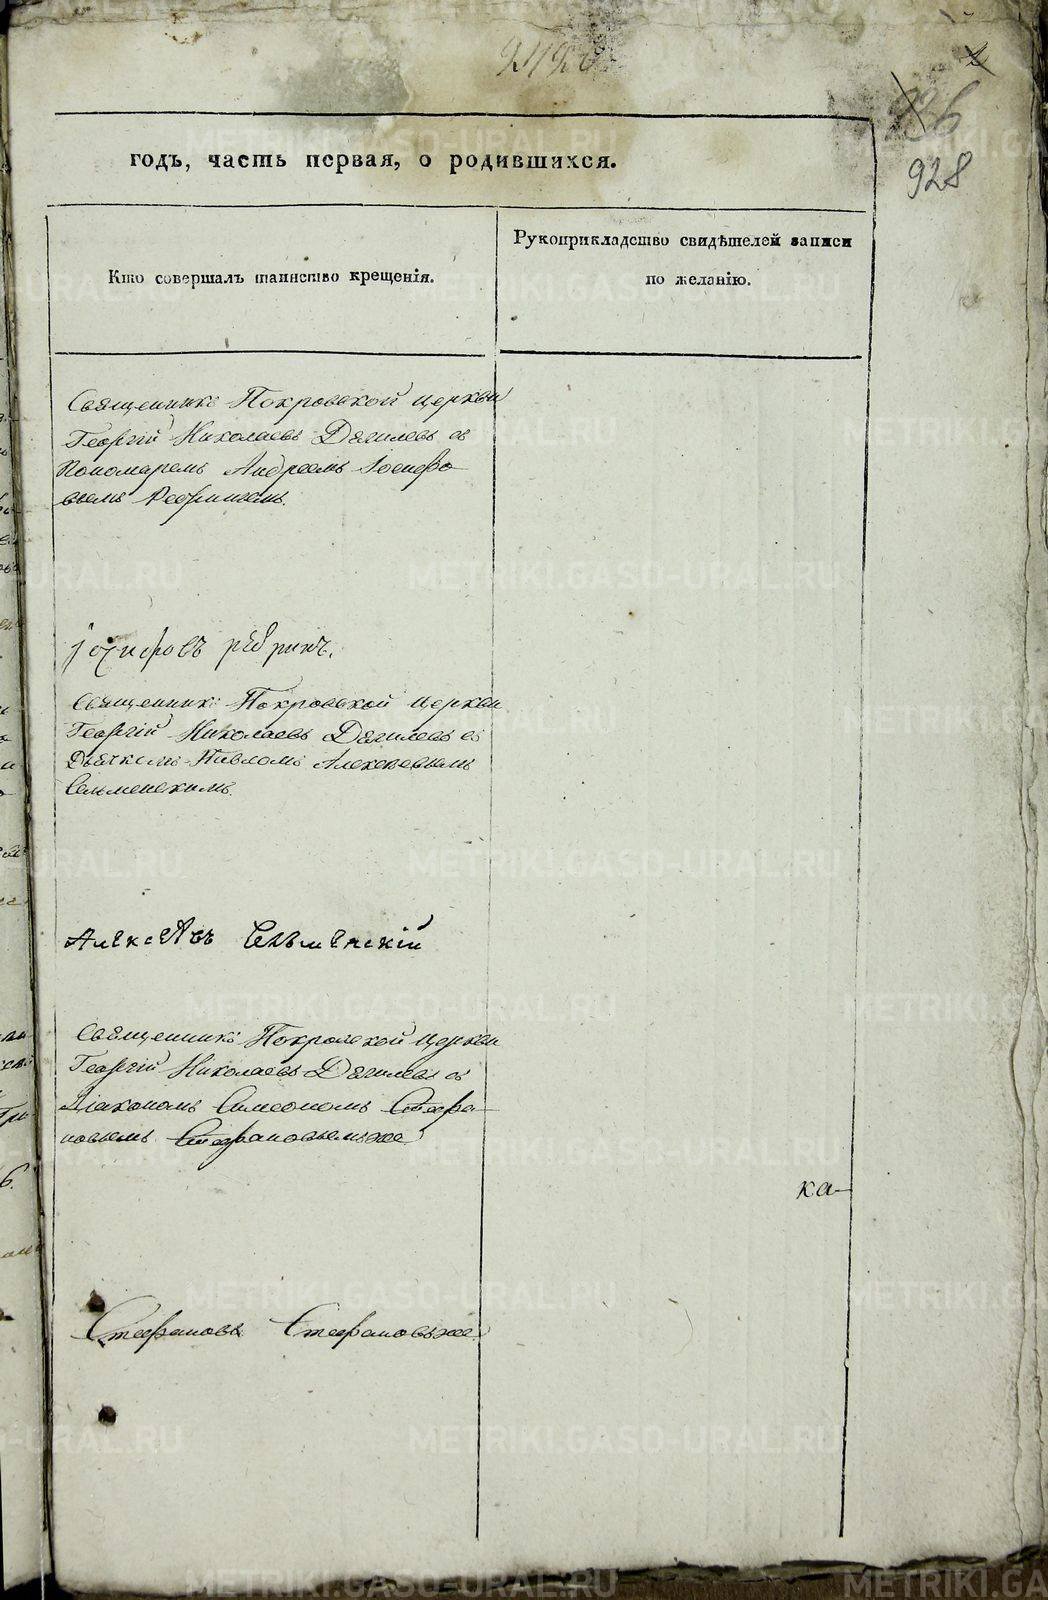 928
годъ, часть первая, о родившихся.
Кто совершалъ таинство крещенія.
Рукоприкладство свидѣтелей записи
по желанію.
Священникъ Покровской церкви
Георгій Николаевъ Дягилевъ съ
Пономаремъ Андреемъ Іосифо
вымъ Ребринымъ.
Іосифовъ рѣбринъ.
Священникъ Покровской церкви
Георгій Николаевъ Дягилевъ съ
Дьячкомъ Павломъ Алексѣевымъ
Сельменскимъ.
Алексѣевъ Селменскій
Священникъ Покровской Церкви
Георгій Николаевъ Дягилевъ съ
Діакономъ Симеономъ Стефа
новымъ Стефановымъ же
ка-
Стефановъ Стефановъ же
METRIKI.GASO-URAL.RU